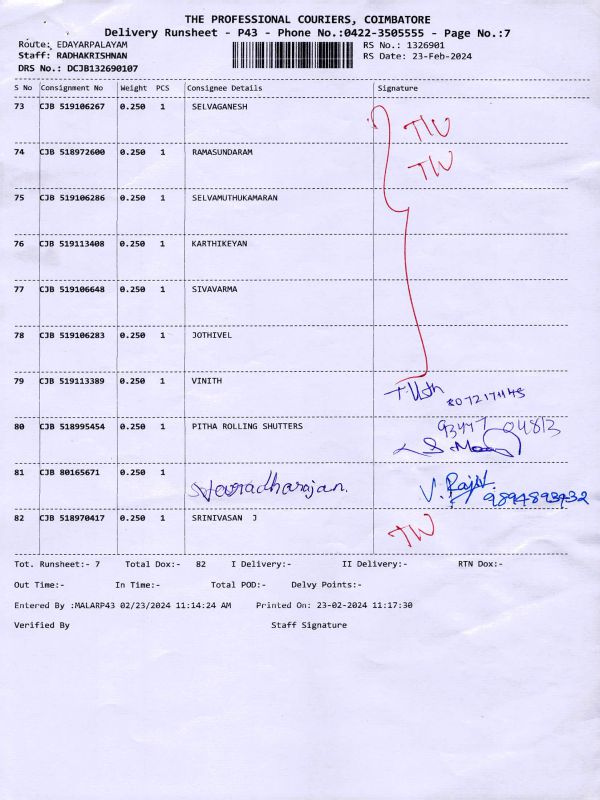 THE PROFESSIONAL COURIERS, COIMBATORE
Delivery Runsheet - P43 - Phone No.:0422-3505555 - Page No.:7
Route: EDAYARPALAYAM RS No.: 1326901
Staff: RADHAKRISHNAN RS Date: 23-Feb-2024
DRS No.: DCJB132690107
S No Consignment No Weight PCS Consignee Details Signature
73 CJB 519106267 0.250 1 SELVAGANESH
74 CJB 518972600 0.250 1 RAMASUNDARAM
75 CJB 519106286 0.250 1 SELVAMUTHUKAMARAN
76 CJB 519113408 0.250 1 KARTHIKEYAN
77 CJB 519106648 0.250 1 SIVAVARMA
78 CJB 519106283 0.250 1 JOTHIVEL
79 CJB 519113389 0.250 1 VINITH
80 CJB 518995454 0.250 1 PITHA ROLLING SHUTTERS 93447 04813
81 CJB 80165671 0.250 1 Varadharajan. 9894893932
82 CJB 518970417 0.250 1 SRINIVASAN J
Tot. Runsheet:- 7 Total Dox:- 82 I Delivery:- II Delivery:- RTN Dox:-
Out Time:- In Time:- Total POD:- Delvy Points:-
Entered By :MALARP43 02/23/2024 11:14:24 AM Printed On: 23-02-2024 11:17:30
Verified By Staff Signature